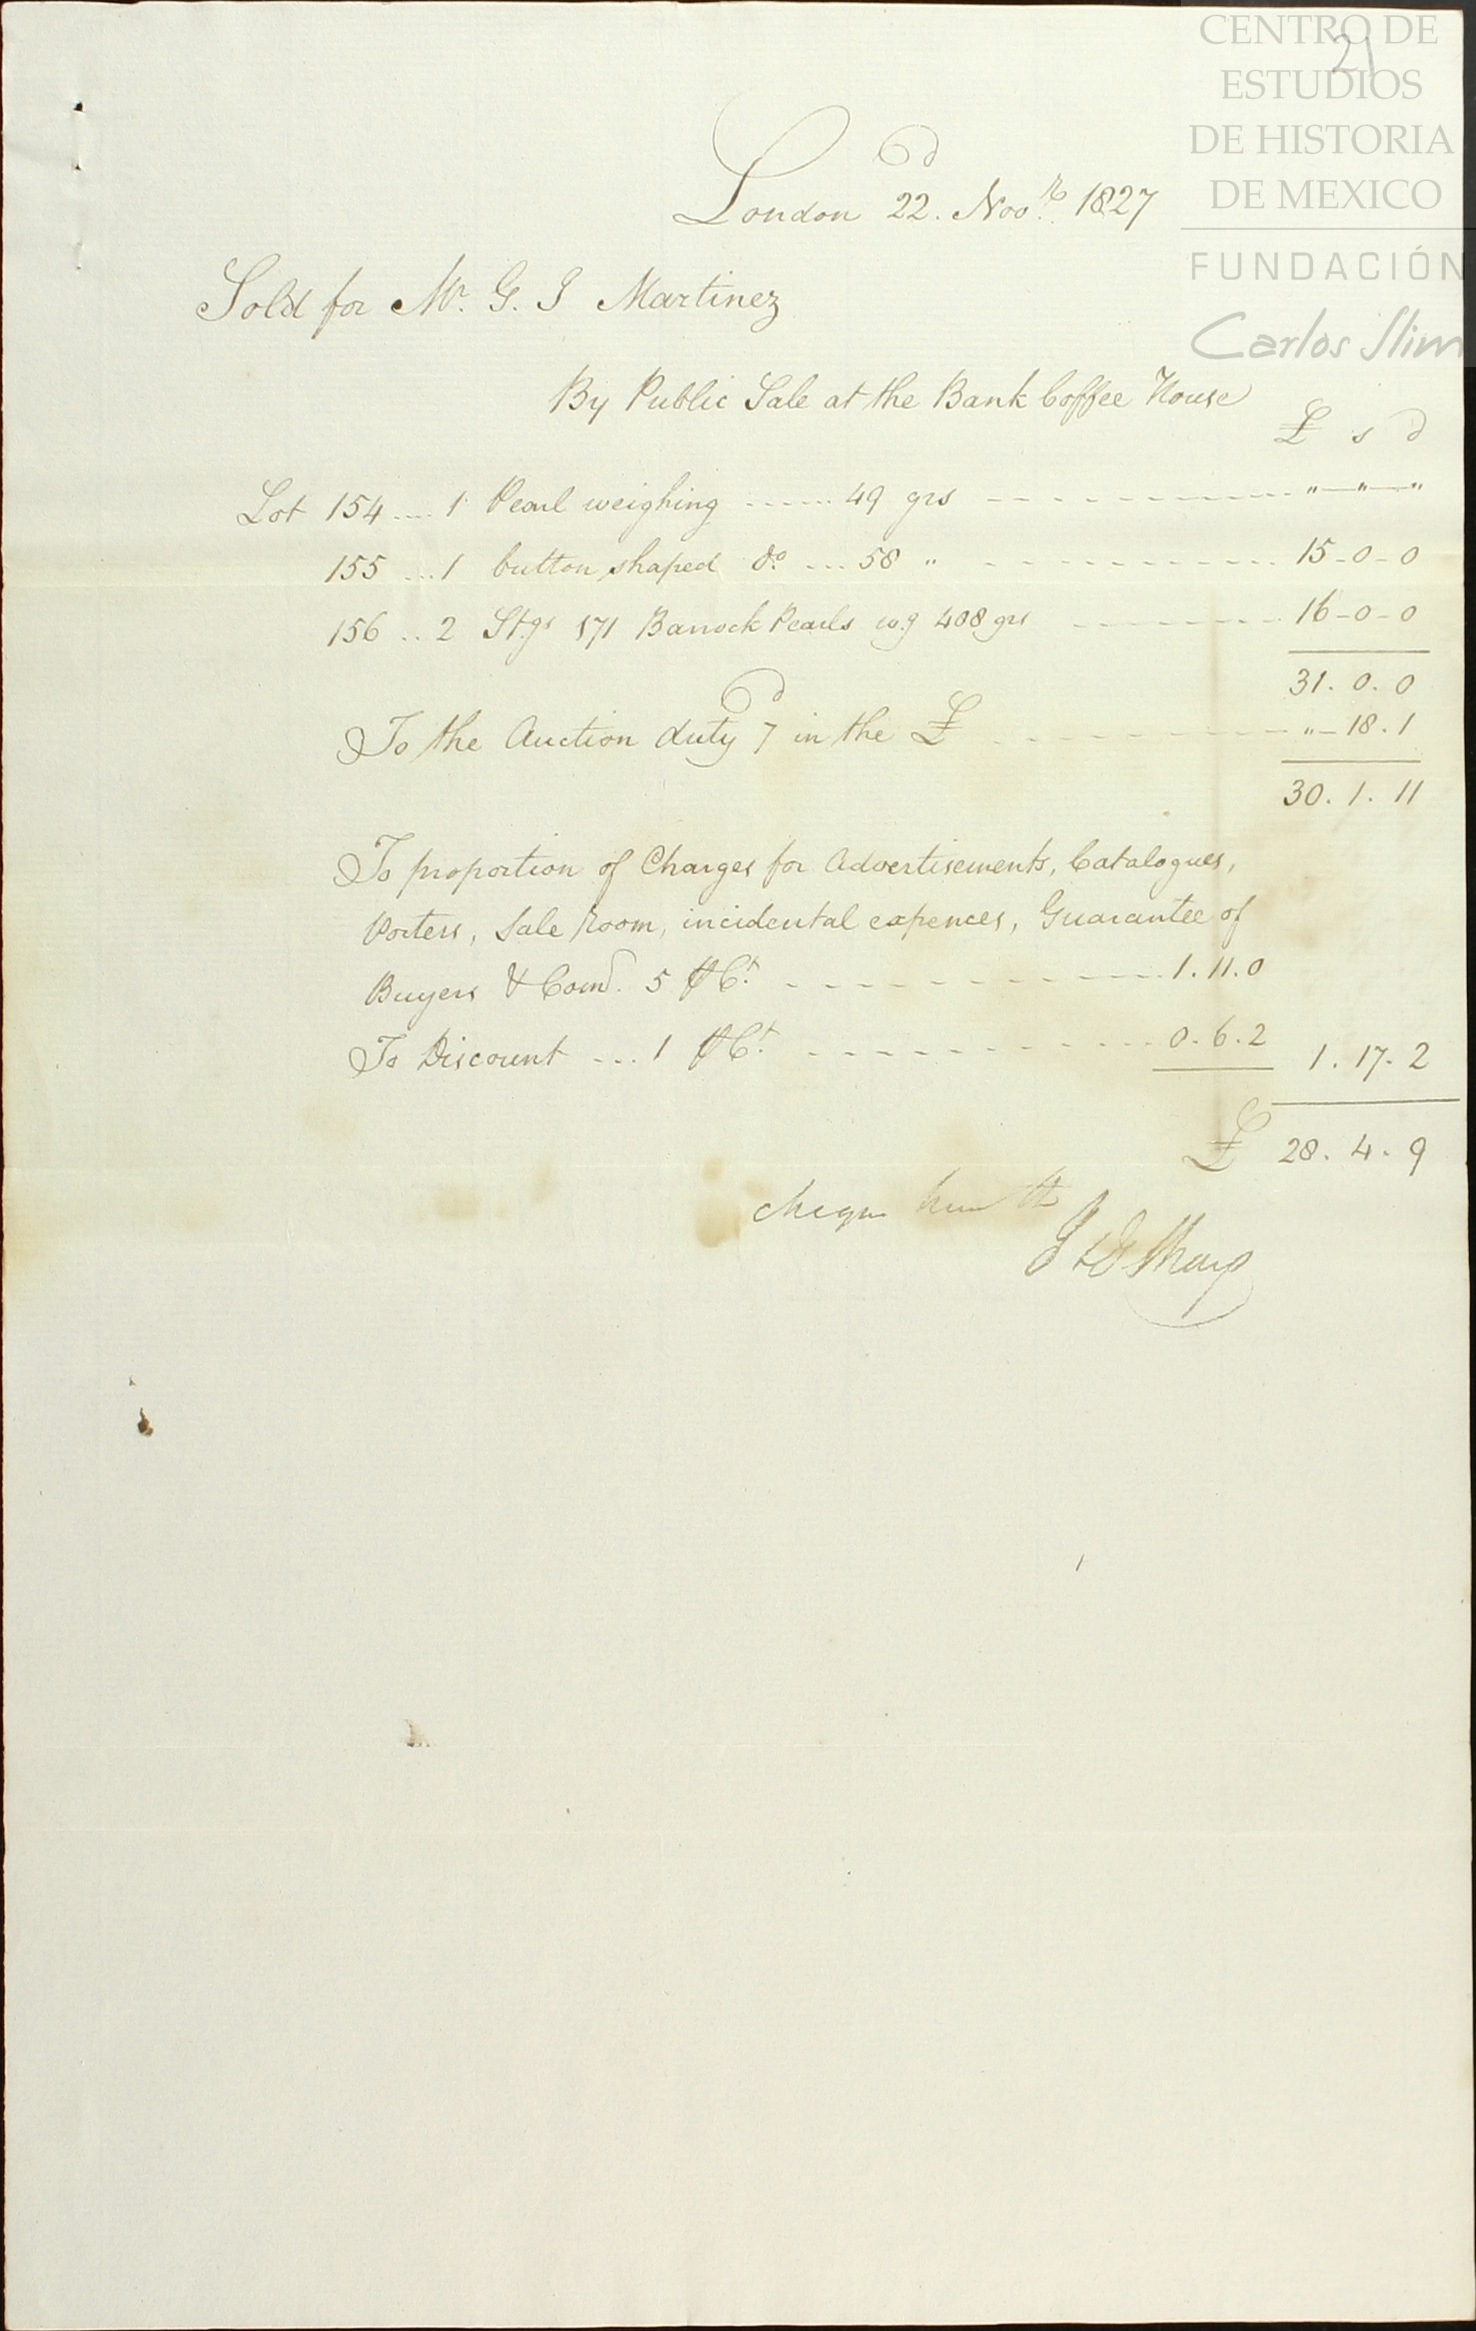 CENTRO DE
ESTUDIOS
DE HISTORIA
DE MEXICO
FUNDACIÓN
Carlos Slim
21
London 22. Novr. 1827
Sold for Mr. G. J Martinez
By Public Sale at the Bank Coffee House
£ s d
Lot 154 .... 1 Pearl weighing ...... 49 grs - - - - - - - - - " — " — "
155 ... 1 button shaped do. ... 58 " - - - - - - - - - - 15 - 0 - 0
156 .. 2 Stgs 171 Barrock Pearls wg 408 grs - - - - - - - 16 - 0 - 0
31. 0. 0
To the Auction duty 7d in the £ - - - - - - - - " - 18. 1
30. 1. 11
To proportion of Charges for Advertisements, Catalogues,
Porters, Sale Room, incidental expences, Guarantee of
Buyers & Comn. 5 ₱ Ct. - - - - - - - - - 1. 11. 0
To Discount ... 1 ₱ Ct. - - - - - - - - - 0. 6. 2 1. 17. 2
£ 28. 4. 9
cheque
J & D Sharp